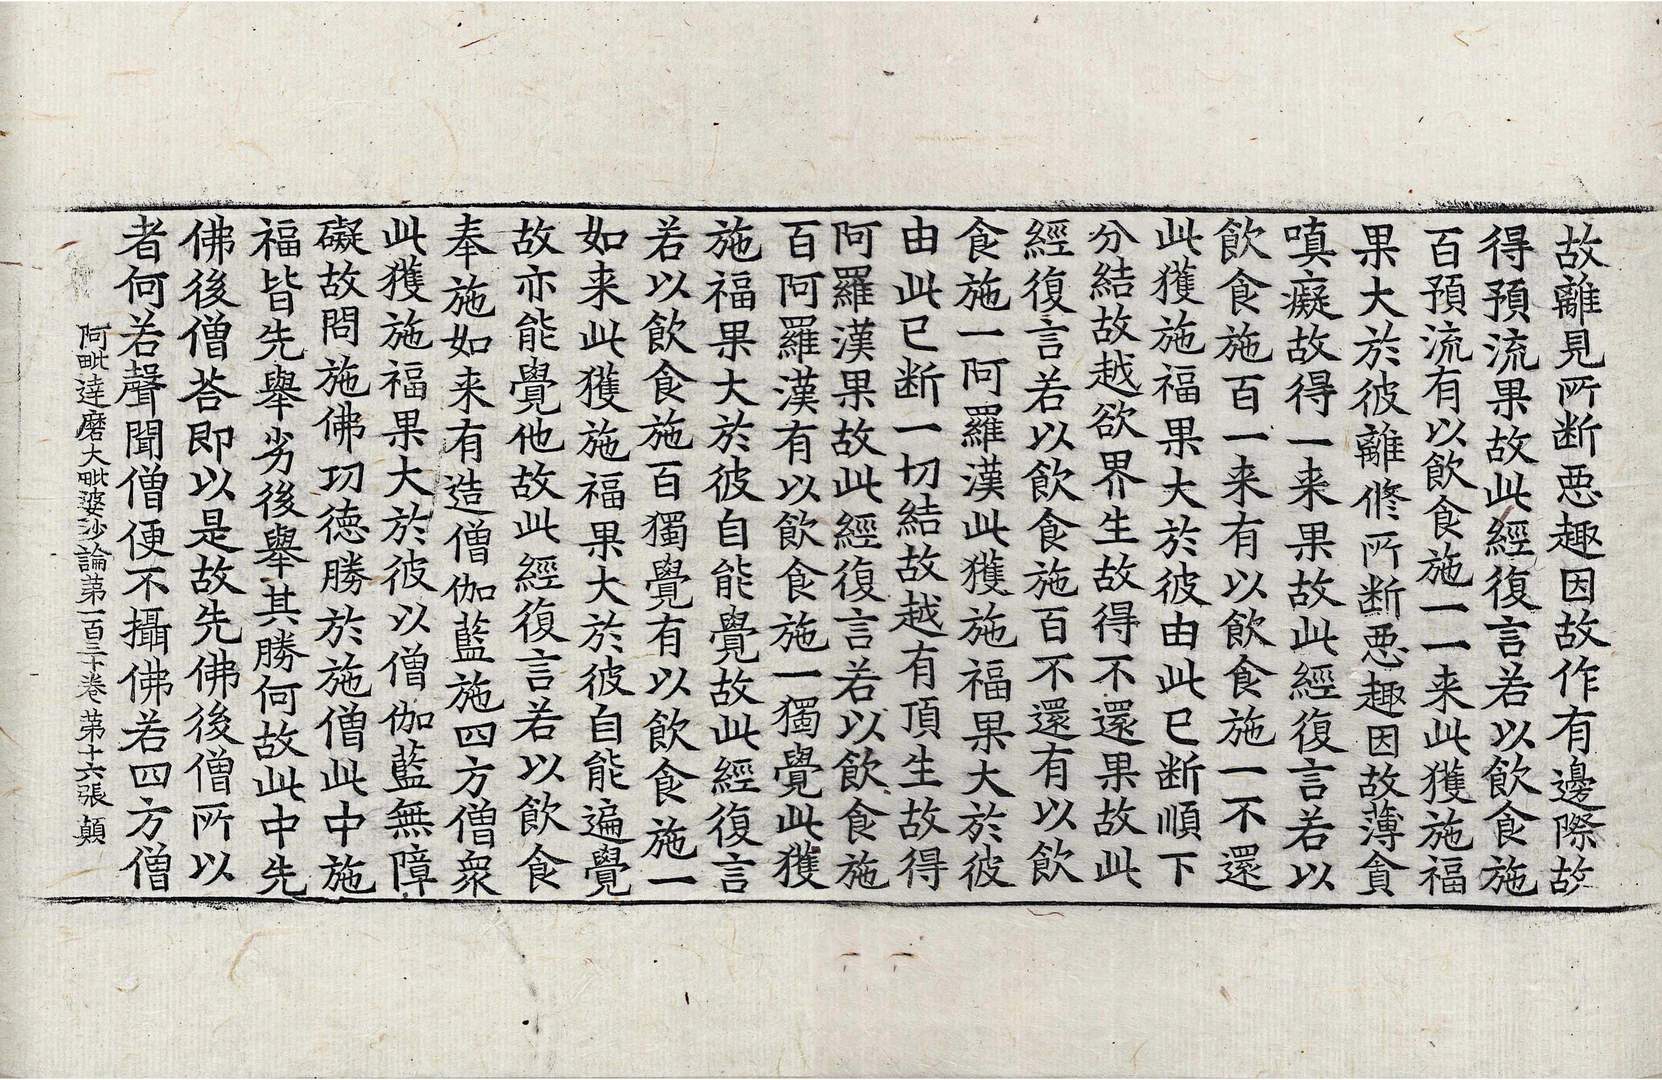 故離見所断惡趣因故作有邊際故
得預流果故此經復言若以飲食施
百預流有以飲食施一一来此獲施福
果大於彼離修所断惡趣因故薄貪
嗔癡故得一来果故此經復言若以
飲食施百一来有以飲食施一不還
此獲施福果大於彼由此已断順下
分結故越欲界生故得不還果故此
經復言若以飲食施百不還有以飲
食施一阿羅漢此獲施福果大於彼
由此已断一切結故越有頂生故得
阿羅漢果故此經復言若以飲食施
百阿羅漢有以飲食施一獨覺此獲
施福果大於彼自能覺故此經復言
若以飲食施百獨覺有以飲食施一
如来此獲施福果大於彼自能遍覺
故亦能覺他故此經復言若以飲食
奉施如来有造僧伽藍施四方僧衆
此獲施福果大於彼以僧伽藍無障
礙故問施佛功德勝於施僧此中施
福皆先舉劣後舉其勝何故此中先
佛後僧荅即以是故先佛後僧所以
者何若聲聞僧便不攝佛若四方僧
阿毗達磨大毗婆沙論第一百三十卷 第十六張 顛